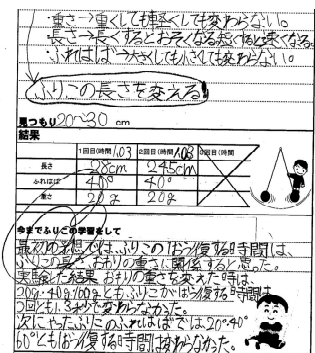 ・重さ→重くしても軽くしても変わらない。
・長さ→長くするとおそくなる短くすると速くなる。
・ふれはば→大きくしても小さくしても変わらない。
ふりこの長さを変える!
見つもり20~30 cm
結果
1回目(時間1.03 2回目(時間1.03 3回目(時間
長さ 28cm 24.5cm
ふれはば 40° 40°
重さ 20g 20g
今までふりこの学習をして
最初の予想では、ふりこの1おう復する時間は、
ふりこの長さ、おもりの重さに関係すると思った。
実験した結果 おもりの重さを変えた時は、
20g・40g・100gともふりこが1おう復する時間は
3回とも1.3秒で変わらなかった。
次にやったふりこのふれはばでは、20°・40°
60°とも1おう復する時間は変わらなかった。